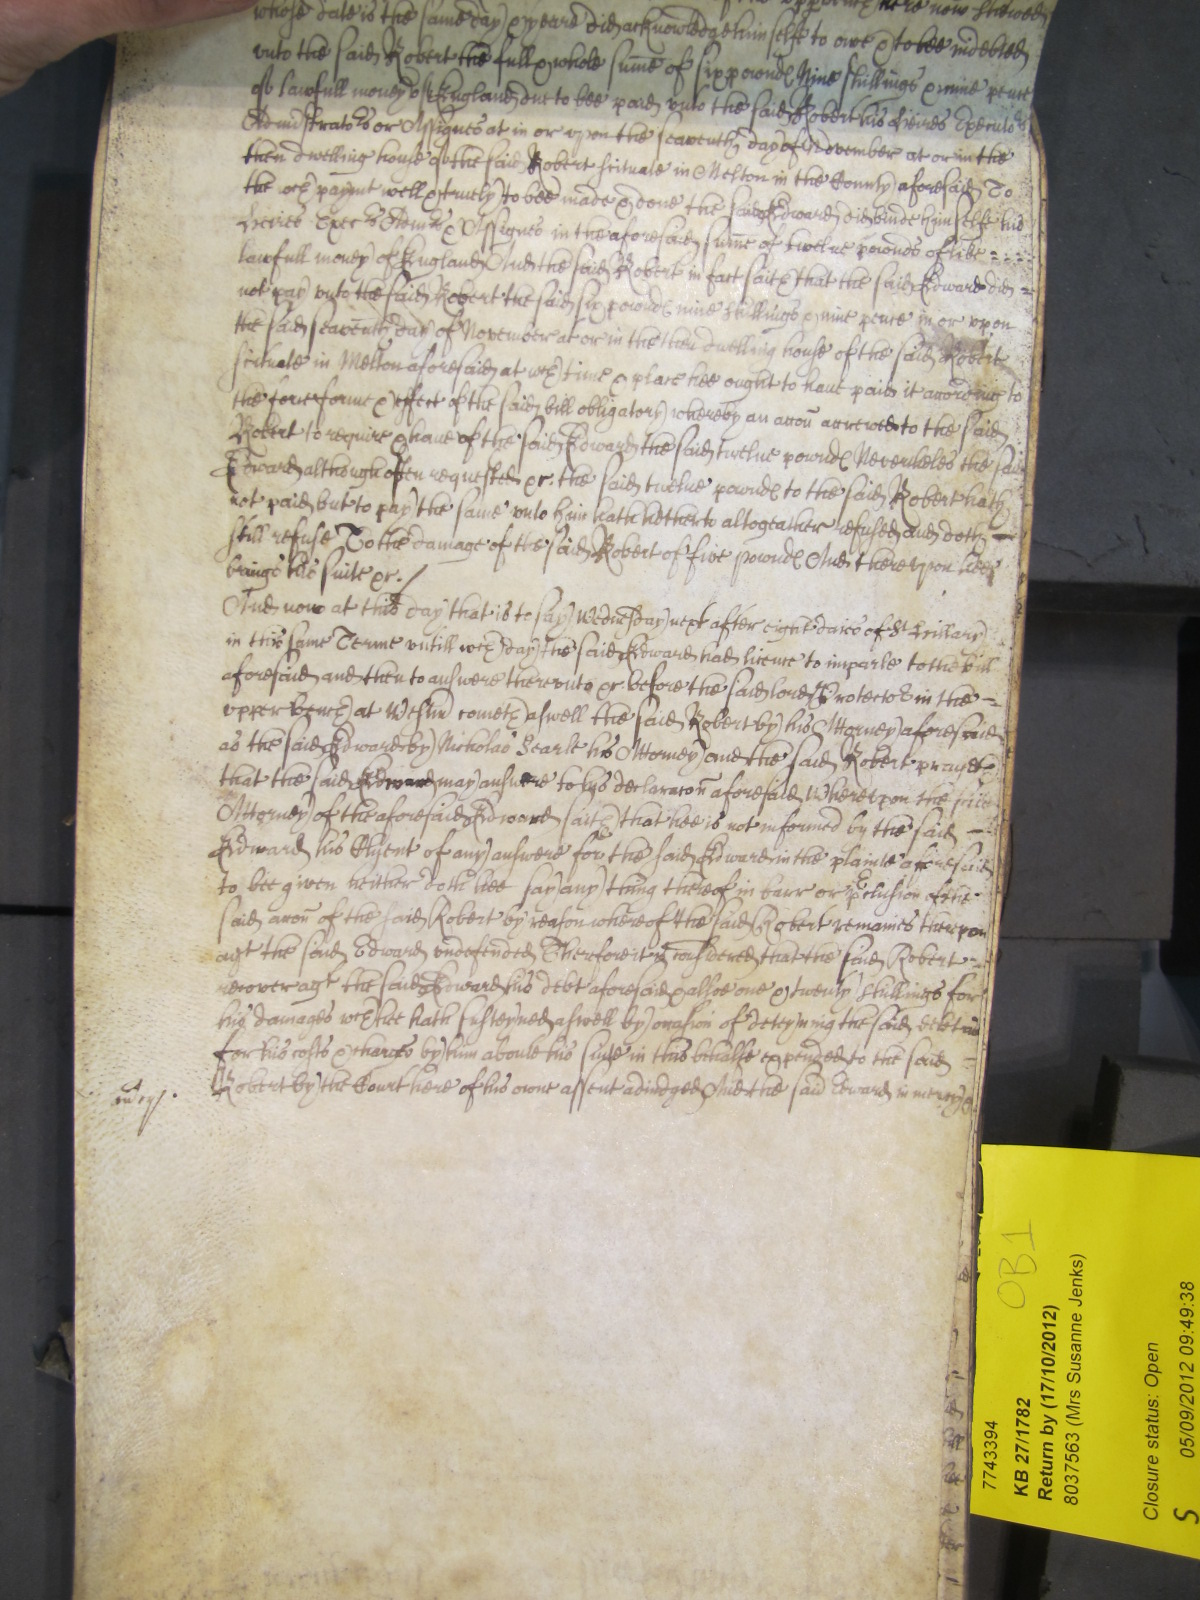 here now shewed
whose date is the same day & yeare did acknowledge himselfe to owe & to bee indebted
unto the said Robert the full & whole sume of six pownds Nine shillings & nine pence
of lawfull money of England due to bee paid unto the said Robert his heires Executors
Administrators or Assignes at in or upon the seaventh day of November at or in the
then dwelling house of the said Robert scituate in Melton in the County aforesaid To
the wch paymt well & truely to bee made & done the said Edward did binde himselfe his
heires Execrs Admrs & Assignes in the aforesaid sume of twelve pownds of like
lawfull money of England And the said Robert in fact saith that the said Edward did
not pay unto the said Robert the said six pownds nine shillings & nine pence in or upon
the said seaventh day of November at or in the then dwelling house of the said Robert
scituate in Melton aforesaid at wch time & place hee ought to have paid it according to
the force forme & effect of the said bill obligatory whereby an accon accrewed to the said
Robert to require & have of the said Edward the said twelve pownds Neverthels the said
Edward although often requested &c. the said twelve pownds to the said Robert hath
not paid but to pay the same unto him hath hetherto altogeather refused and doth
still refuse To the damage of the said Robert of five pownds And thereupon hee
brings his suite &c./
And now at this day that is to say Wednsday next after eight daies of St Hillary
in this same Terme untill wch day the said Edward had licence to imparle to the bill
aforesaid and then to answere thereunto &c before the said lord Protector in the
upper bench at Westm cometh aswell the said Robert by his Attorney aforesaid
as the said Edward by Nicholas Searle his Attorney and the said Robert prayeth
that the said Edward may answere to his declaracon aforesaid Whereupon the said
Attorney of the aforesaid Edward saith that hee is not informed by the said
Edward his Clyent of any answere for the said Edward in the plainte aforesaid
to bee given neither doth hee say any thing thereof in barr or preclusion of the
said accon of the said Robert by reason whereof the said Robert remaines therupon
agt the said Edward undefended Therefore it is considered that the said Robert
recover agt the said Edward his debt aforesaid & alsoe one & twenty shillings for
his damages wch hee hath susteyned aswell by occasion of deteyning the said debt as
for his costs & charges by him aboute his suite in this behalfe expended to the said
Robert by the Court here of his owne assent adiudged And the said Edward in mercy &c
mcy.
OB1
7743394
KB 27/1782
Return by (17/10/2012)
8037563 (Mrs Susanne Jenks)
Closure status: Open
S 05/09/2012 09:49:38